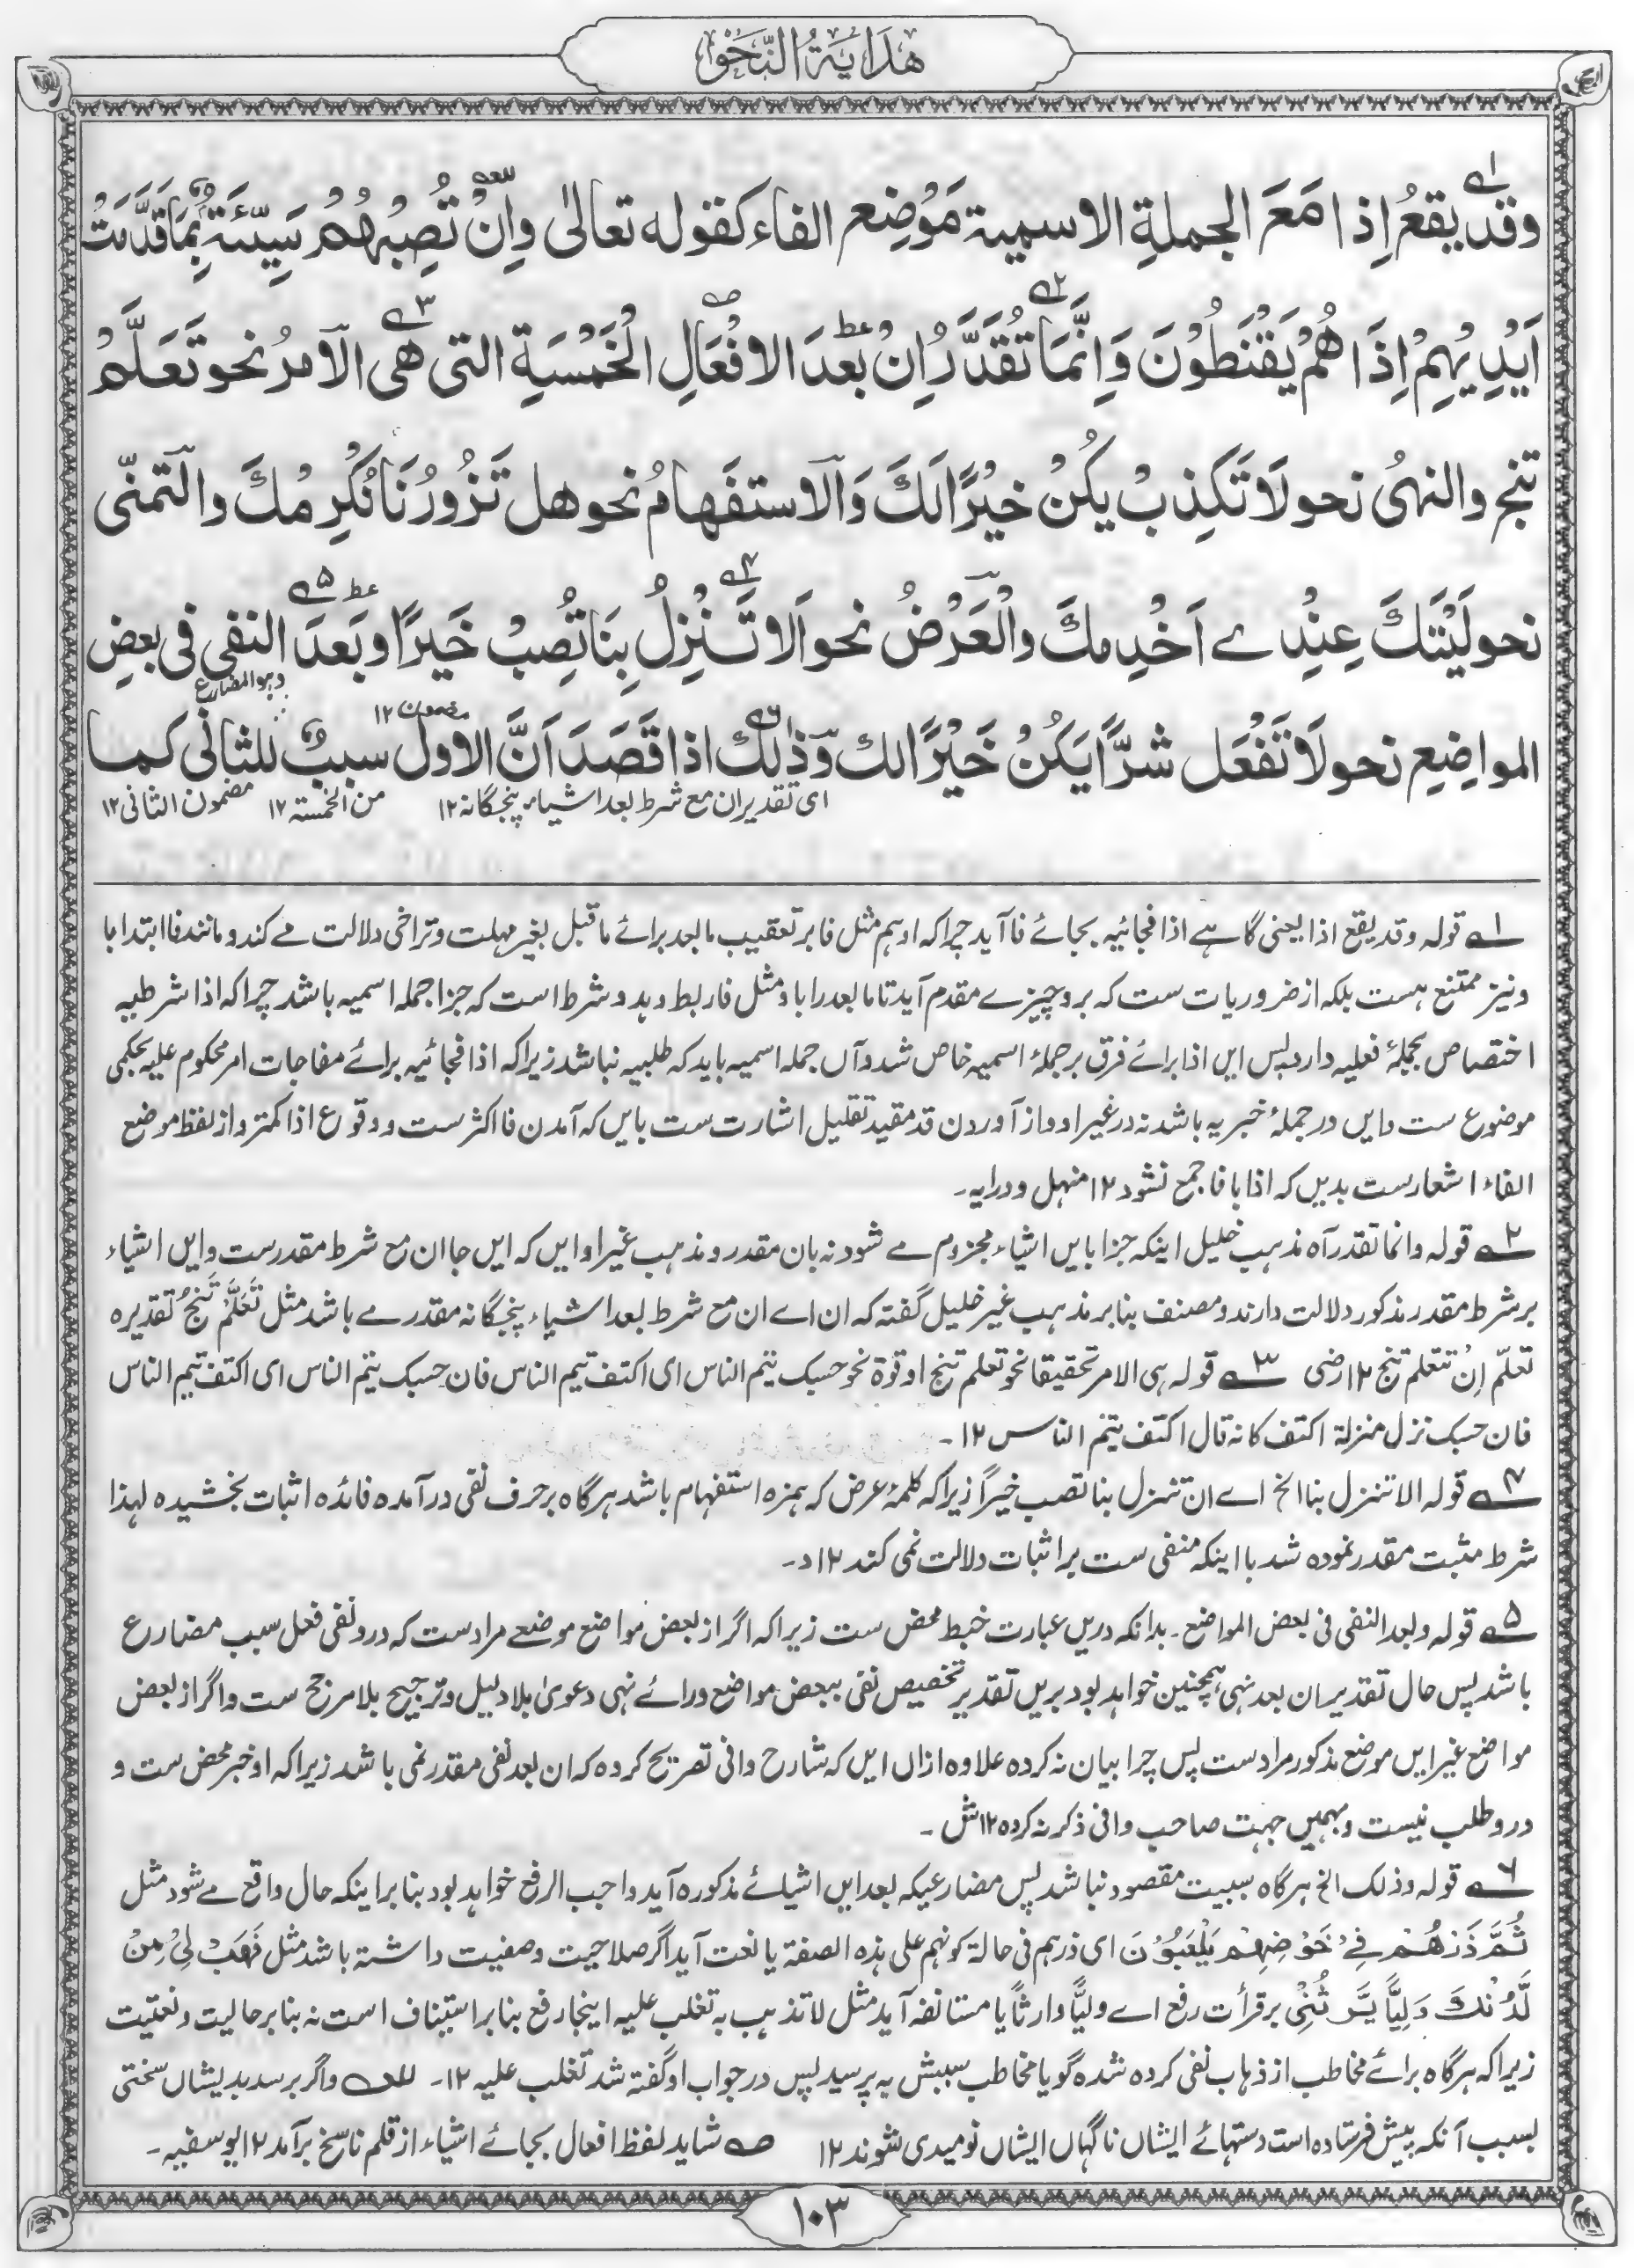 هداية النحو
وقد يقعُ إذا مَعَ الجملةِ الاسمية مَوْضِع الفاء كقوله تعالىٰ وَاِنْ تُصِبْهُمْ سَيِّئَةٌ بِمَا قَدَّمَتْ
اَيْدِيْهِمْ اِذَا هُمْ يَقْنَطُوْنَ وَاِنَّمَا تُقَدَّرُ اِنْ بعدَ الافْعَالِ الْخَمْسَةِ التى هى الْاَمرُ نحو تَعَلَّمْ
تنج والنهىُ نحو لَا تَكذِبْ يكُنْ خيْرًا لَكَ وَالاستفهامُ نحو هل تَزُوْرُنَا نُكْرِمْكَ والتمنّى
نحو لَيْتَكَ عِنْدِے اَخْدِمكَ والْعَرْضُ نحو اَلا تَنْزِلُ بِنَا تُصِبْ خَيرًا وبَعدَ النفى فى بعضِ
وہو المضارع
مضمون ١٢
المواضِعِ نحو لَا تَفْعَل شرًّا يَكُنْ خَيْرًا لك وَذٰلِكَ اذا قَصَدَ اَنَّ الاول سببٌ للثانى كما
اى تقدیر ان مع شرط بعد اشیاء پنجگانہ ١٢ من الخمسة ١٢ مضمون الثانى ١٢
١ قولہ وقد یقع اذا یعنی گاہے اذا فجائیہ بجائے فا آید چراکہ او ہم مثل فا بر تعقیب مابعد برائے ماقبل بغیر مہلت وتراخی دلالت مے کند ومانند فا ابتدا با
ونیز ممتنع ہست بلکہ از ضروریات ست کہ برو چیزے مقدم آید تا مابعد را باو مثل فا ربط دہد وشرط است کہ جزا جملہ اسمیہ باشد چراکہ اذا شرطیہ
اختصاص بجملۂ فعلیہ دارد پس ایں اذا برائے فرق بر جملۂ اسمیہ خاص شد وآں جملہ اسمیہ باید کہ طلبیہ نباشد زیراکہ اذا فجائیہ برائے مفاجات امر محکوم علیہ بحکمی
موضوع ست وایں در جملۂ خبریہ باشد نہ در غیر او واز آوردن قد مقید تقلیل اشارت ست بایں کہ آمدن فا اکثر ست ووقوع اذا کمتر واز لفظ موضع
الفاء اشعارست بدیں کہ اذا با فا جمع نشود ١٢ منہل ودرایہ۔
٢ قولہ وانما تقدر آہ مذہب خلیل اینکہ جزا بایں اشیاء مجزوم مے شود نہ بان مقدر ومذہب غیر او ایں کہ ایں جا ان مع شرط مقدرست وایں اشیاء
بر شرط مقدر مذکور دلالت دارند ومصنف بنا بر مذہب غیر خلیل گفتہ کہ ان اے ان مع شرط بعد اشیاء پنجگانہ مقدر مے باشد مثل تَعَلَّمْ تَنْجُ تقدیرہ
تعلّم اِنْ تتعلم تنج ١٢ رضی ٣ قولہ ہی الامر تحقیقا نحو تعلم تنج او قوۃ نحو حسبک ینم الناس ای اکتف ینم الناس فان حسبک ینم الناس ای اکتف ینم الناس
فان حسبک نزل منزلة اکتف کانہ قال اکتف ینم الناس ١٢۔
٤ قولہ الا تنزل بنا الخ اے ان تنزل بنا تصب خیراً زیراکہ کلمۂ عرض کہ ہمزہ استفہام باشد ہرگاہ بر حرف نفی درآمدہ فائدہ اثبات بخشیدہ لہذا
شرط مثبت مقدر نمودہ شد با اینکہ منفی ست بر اثبات دلالت نمی کند ١٢ د۔
٥ قولہ وبعد النفی فی بعض المواضع۔ بدانکہ دریں عبارت خبط محض ست زیراکہ اگر از بعض مواضع موضعے مرادست کہ درو نفی فعل سبب مضارع
باشد پس حال تقدیر ان بعد نہی ہمچنین خواہد بود بریں تقدیر تخصیص نفی ببعض مواضع ورائے نہی دعویٰ بلا دلیل وترجیح بلا مرجح ست واگر از بعض
مواضع غیر ایں موضع مذکور مرادست پس چرا بیان نہ کردہ علاوہ ازاں ایں کہ شارح وافی تصریح کردہ کہ ان بعد نفی مقدر نمی باشد زیراکہ او خبر محض ست و
درو طلب نیست وبہمیں جہت صاحب وافی ذکر نہ کردہ ١٢ ش۔
٦ قولہ وذلک الخ ہرگاہ سببیت مقصود نباشد پس مضارعیکہ بعد ایں اشیائے مذکورہ آید واجب الرفع خواہد بود بنا بر اینکہ حال واقع مے شود مثل
ثُمَّ ذَرْهُمْ فِیْ خَوْضِهِمْ يَلْعَبُوْنَ ای ذرہم فی حالة کونہم علی ہذہ الصفة یا نعت آید اگر صلاحیت وصفیت داشتہ باشد مثل فَهَبْ لِیْ مِنْ
لَّدُنْكَ وَلِيًّا يَّرِثُنِیْ بر قرأت رفع اے ولیًّا وارثاً یا مستانفہ آید مثل لا تذہب بہ تغلب علیہ اینجا رفع بنا بر استیناف است نہ بنا بر حالیت ونعتیت
زیراکہ ہرگاہ برائے مخاطب از ذہاب نفی کردہ شدہ گویا مخاطب سببش پہ پرسید پس در جواب او گفتہ شد تغلب علیہ ١٢۔ واگر برسد بدیشاں سختی
بسبب آنکہ پیش فرستادہ است دستہائے ایشاں ناگہاں ایشاں نومیدی شوند ١٢ صہ شاید لفظ افعال بجائے اشیاء از قلم ناسخ برآمد ١٢ ابو سفیہ۔
١٠٣